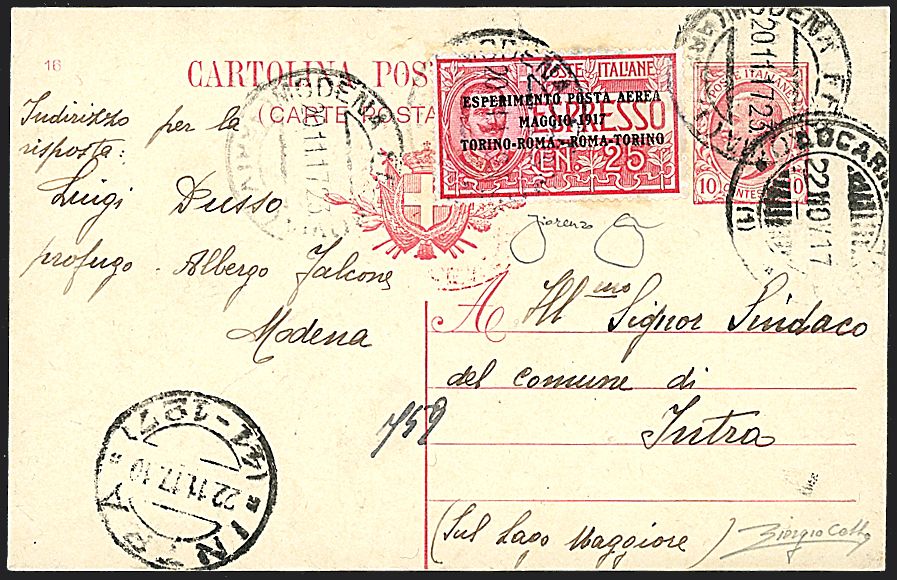 16
CARTOLINA POS
(CARTE POSTA
POSTE ITALIANE
ESPERIMENTO POSTA AEREA
MAGGIO-1917
TORINO-ROMA - ROMA-TORINO
ESPRESSO
CEN 25
POSTE ITALIANE
10 CENTES 10
MODENA
20 11 17 23
MODENA
20 11 17 23
MODENA
LOCARN
22 XI 17
(1)
Indirizzo per la
risposta:
Luigi Dusso
profugo - Albergo Falcone
Modena
Fiorenzo
A Ill.mo Signor Sindaco
del comune di
Intra
(Sul Lago Maggiore)
Giorgio Colla
INTRA
22.11.17.10